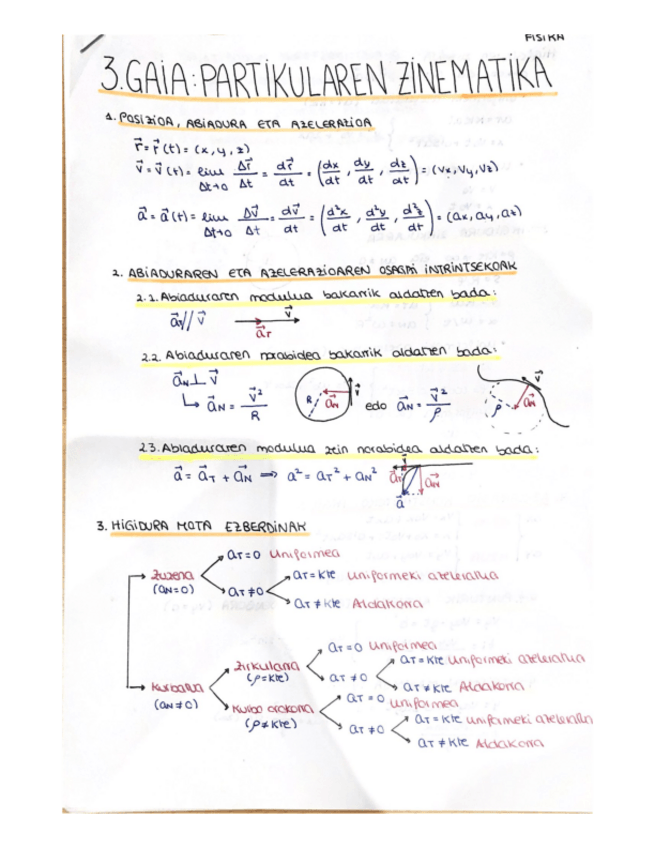 FISIKA
3.GAIA: PARTIKULAREN ZINEMATIKA
1. POSIZIOA, ABIADURA ETA AZELERAZIOA
r⃗ = r⃗(t) = (x, y, z)
v⃗ = v⃗(t) = lim Δt→0 Δr⃗/Δt = dr⃗/dt = (dx/dt, dy/dt, dz/dt) = (vx, vy, vz)
a⃗ = a⃗(t) = lim Δt→0 Δv⃗/Δt = dv⃗/dt = (d²x/dt, d²y/dt, d²z/dt) = (ax, ay, az)
2. ABIADURAREN ETA AZELERAZIOAREN OSAGAI INTRINTSEKOAK
2.1. Abiaduraren modulua bakarrik aldatzen bada:
a⃗T // v⃗ v⃗ a⃗T
2.2. Abiaduraren norabidea bakarrik aldatzen bada:
a⃗N ⊥ v⃗
↳ a⃗N = v⃗²/R R a⃗N v⃗ edo a⃗N = v⃗²/ρ ρ a⃗N v⃗
2.3. Abiaduraren modulua zein norabidea aldatzen bada:
a⃗ = a⃗T + a⃗N ⇒ a² = aT² + aN² v⃗ a⃗T a⃗N a⃗
3. HIGIDURA MOTA EZBERDINAK
aT = 0 Uniformea
Zuzena (aN = 0)
aT ≠ 0
aT = kte Uniformeki azeleratua
aT ≠ kte Aldakorra
Kurbatua (aN ≠ 0)
Zirkularra (ρ = kte)
aT = 0 Uniformea
aT ≠ 0
aT = kte Uniformeki azeleratua
aT ≠ kte Aldakorra
Kurbo orokorra (ρ ≠ kte)
aT = 0 Uniformea
aT ≠ 0
aT = kte Uniformeki azeleratua
aT ≠ kte Aldakorra